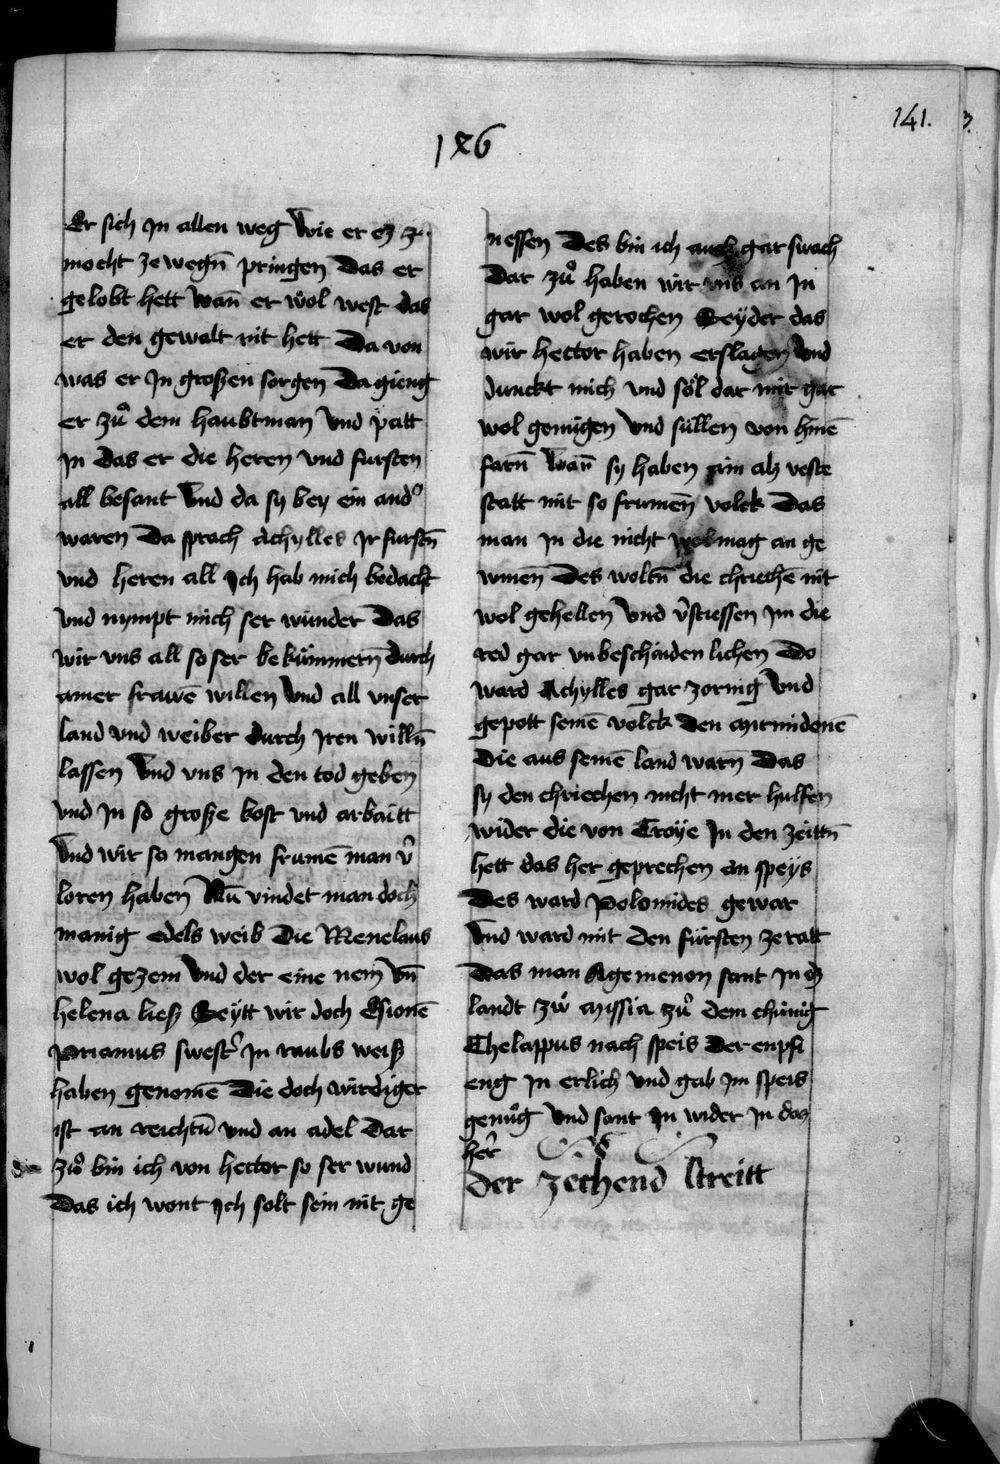 141.
186
Er sich Jn allen weg Wie er eß z
mocht ze wegn̄ pringen Das er
gelobt hett wan̄ er wol west das
er den gewalt nit hett Da von
was er Jn großen sorgen Da gieng
er zuͦ dem haubtman Vnd patt
Jn das er die heren vnd fursten
all besant Vnd da sy bey ein and̉
waren Da sprach Achylles Jr furstn̄
vnd heren all Jch hab mich bedacht
vnd nympt mich ser wunder Das
wir vns all so ser bekümmern̄ durch
ainer frawē willen Vnd all vnser
land vnd weiber durch Jren willn̄
lassen Vnd vns Jn den tod geben
vnd Jn so große kost vnd arbaitt
Vnd wir so mangen frumē man v̉
loren haben Nu vindet man doch
manig edels weib Die Menelaus
wol gezem Vnd der eine nem Vn̄
helena ließ Seytt wir doch Esionē
Priamus swest̉ Jn raubs weiß
haben genomē Die doch wirdiger
ist an reichtū vnd an adel Dar
zuͦ bin ich von hector so ser wund
Das ich wont Jch solt sein nit ge
nessen Des bin ich auch gar swach
Dar zuͦ haben wir vns an Jn
gar wol gerochen Seyder das
wir hector haben erslagen Vnd
dunckt mich vnd sol dar mir gar
wol genügen Vnd süllen von hinē
farn̄ Wan̄ sy haben ain alz veste
statt mit so frumen̄ volck Das
man Jn die nicht wol mag an ge
winen̄ Des woltn̄ die chriechē nit
wol gehellen Vnd v̉stiessen Jm die
red gar vnbeschaiden lichen Do
ward Achylles gar zornig Vnd
gepott seinē volck Den mirmidonē
Die aus seinē land warn̄ Das
sy den chriechen nicht mer hulfen
wider die von Troye Jn den zeittn̄
hett das her geprechen an speys
Des ward Polomides gewar
Vnd ward mit den fürsten ze ratt
Das man Agemenon sant Jn dz
landt zuͦ Missia zuͦ dem chünig
Thelappus nach speis Der enpfi
eng Jn erlich Vnd gab Jm speis
genuͦg Vnd sant Jn wider Jn das
her̉
Der zechend streitt